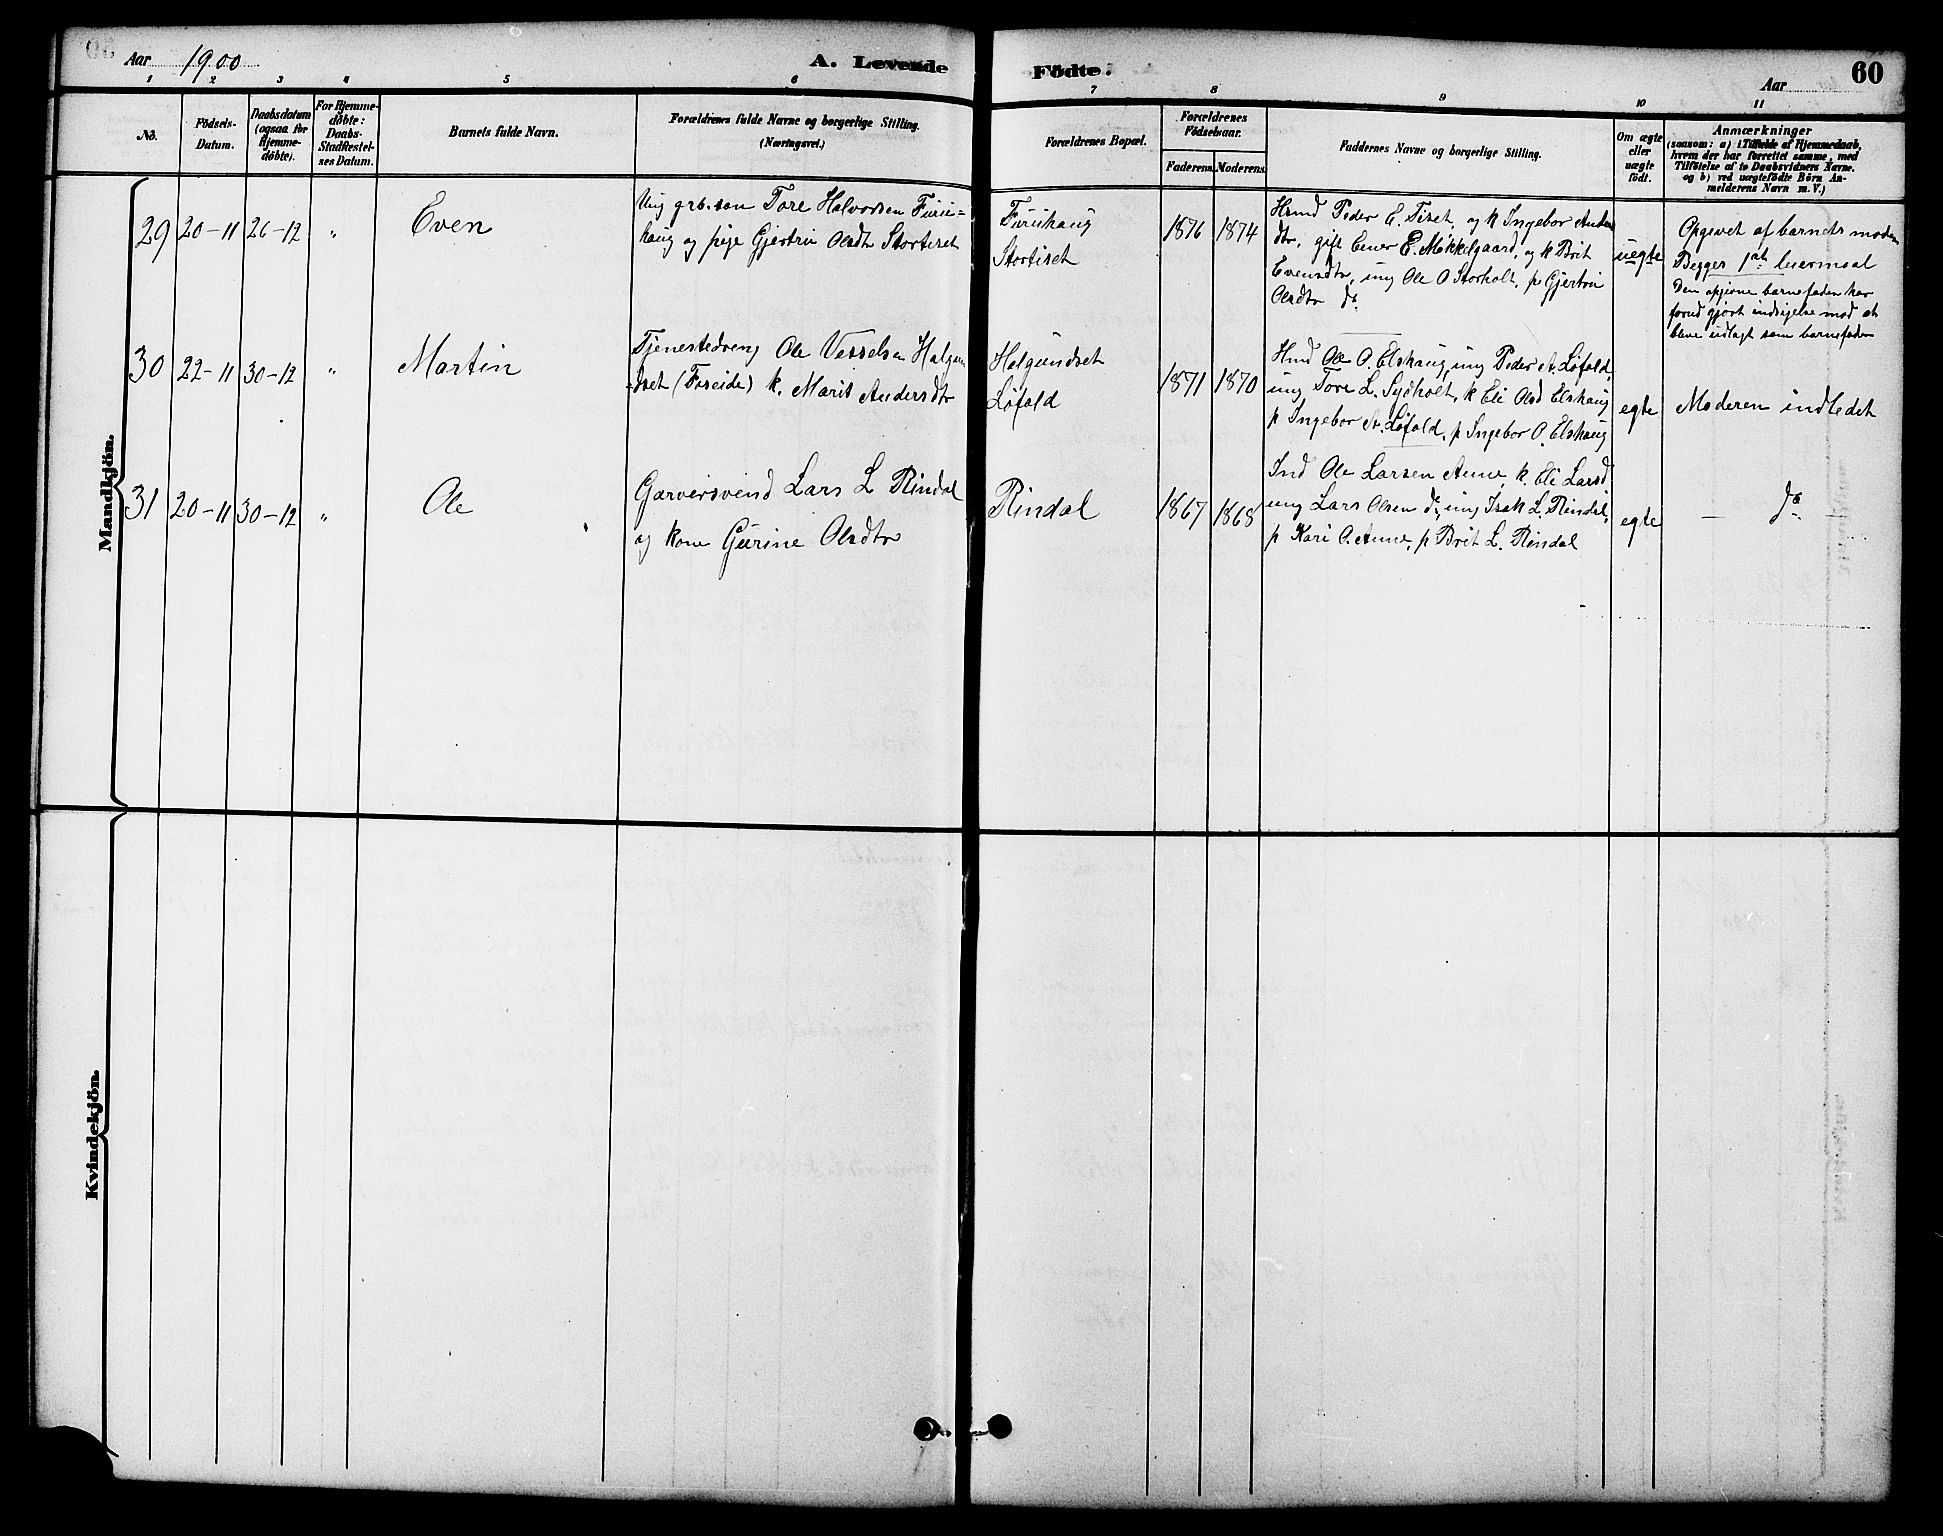 Aar 1900
A. Levende Fødte.
Aar
60
1 2 3 4 5 6 7 8 9 10 11
No.
Födsels-
Datum.
Daabsdatum
(ogsaa for
Hjemme-
døbte).
For Hjemme-
døbte:
Daabs-
Stadfæstel-
ses Datum.
Barnets fulde Navn.
Forældrenes fulde Navne og borgerlige Stilling.
(Næringsvei.)
Forældrenes Bopæl.
Forældrenes
Födselsaar.
Faderens. Moderens.
Faddernes Navne og borgerlige Stilling.
Om ægte
eller
uægte
födt.
Anmærkninger
(saasom: a) i Tilfælde af Hjemmedaab,
hvem der har forrettet samme, med
Tilføielse af to Daabsvidners Navne.
og b) ved uægtefødte Börn An-
melderens Navn m. V.)
Mandkjön.
29 20-11 26-12 " Even
Ung grb. søn Tore Halvorsen Furu=
haug og pige Gjertru Olsdtr Stortiset
Furuhaug
Stortiset
1876 1874
Hmd Peder E. Tiset, og k Ingebor Anders
dtr, gift Ener E. Mikkelgaard, og k Brit
Evensdtr, ung Ole O Storholt, p Gjertru
Olsdtr do
uegte
Opgivet af barnets moder
Begges 1ste leiermaal
Den opgivne barnefader har
forud gjort indsigelse mod at
blive udlagt som barnefader
30 22-11 30-12 " Martin
Tjenestedreng Ole Vesselsen Halgun
dset (Foreide) k. Marit Andersdtr
Halgundset
Løfald
1871 1870
Hmd Ole O. Elshaug, ung Peder A. Løfald,
ung Tore L. Sydholt, k Eli Olsd Elshaug
p Ingebor A. Løfald, p Ingebor O. Elshaug
egte
Moderen indledet
31 20-11 30-12 " Ole
Garversvend Lars L Rindal
og kone Gurine Olsdtr
Rindal
1867 1868
Ind Ole Larsen Aune, k. Eli Larsd
ung Lars Olsen do, ung Isak L. Rindal,
p Kari O. Aune, p Brit L. Rindal
egte
— do —
Kvindekjön.